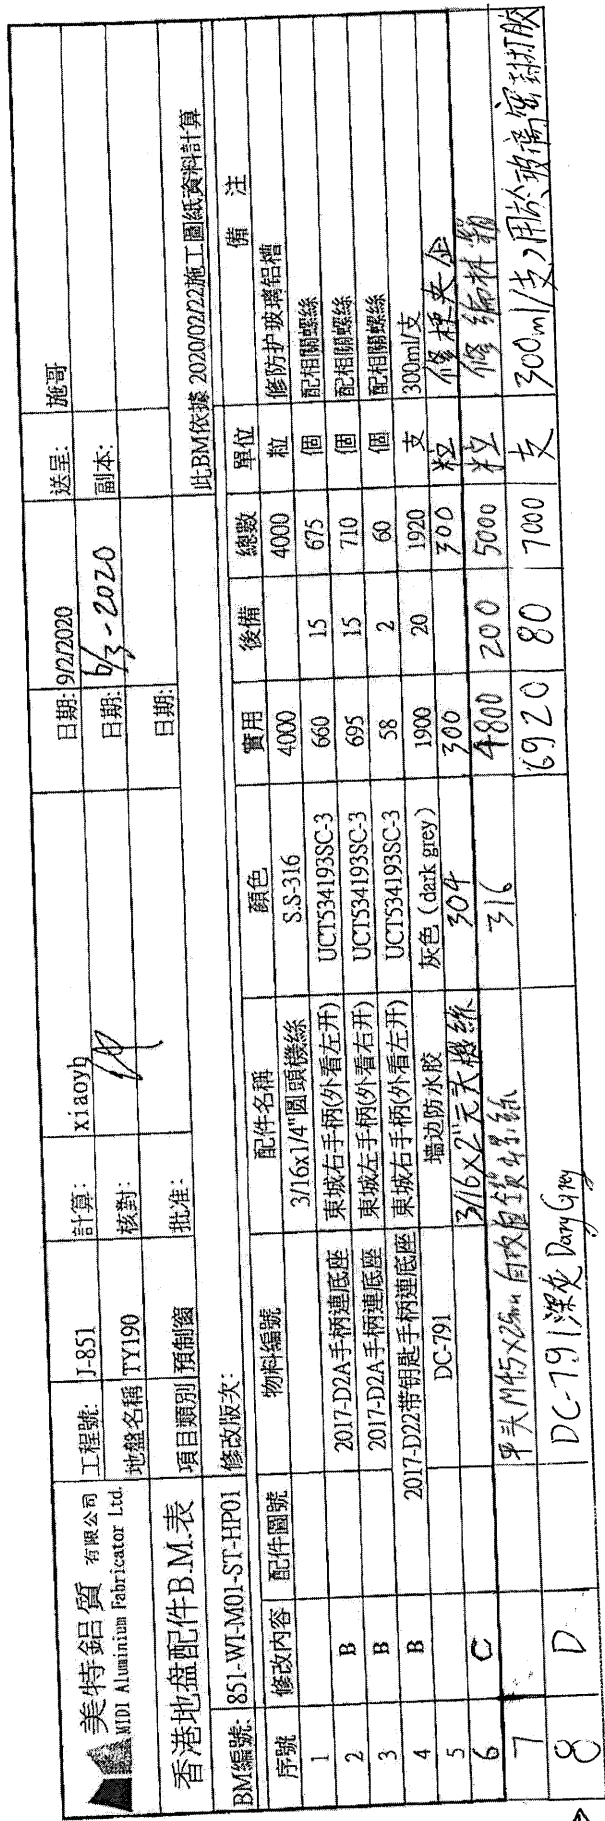 美特鋁質 有限公司
MIDI Aluminium Fabricator Ltd.
工程號: J-851 計算: xiaoyh 日期: 9/2/2020 送呈: 施哥
地盤名稱 TY190 核對: 日期: 6/3-2020 副本:
香港地盘配件B.M.表 項目類別 預制窗 批准: 日期:
BM編號: 851-WI-M01-ST-HP01 修改版次: 此BM依據 2020/02/22施工圖紙資料計算
序號 修改內容 配件圖號 物料編號 配件名稱 顏色 實用 後備 總數 單位 備 注
1 3/16x1/4"圆頭機絲 S.S-316 4000 4000 粒 修防护玻璃铝槽
2 B 2017-D2A手柄連底座 東城右手柄(外看左开) UCT534193SC-3 660 15 675 個 配相關螺絲
3 B 2017-D2A手柄連底座 東城左手柄(外看右开) UCT534193SC-3 695 15 710 個 配相關螺絲
4 B 2017-D22带钥匙手柄連底座 東城右手柄(外看左开) UCT534193SC-3 58 2 60 個 配相關螺絲
5 DC-791 墙边防水胶 灰色（dark grey） 1900 20 1920 支 300ml/支
6 C 3/16X2" 機絲 304 300 300 粒
7 平头M4.5X25mm自攻 絲 316 4800 200 5000 粒
8 D DC-791深灰 Dary Grey 6920 80 7000 支 300ml/支,用於玻璃密封打胶